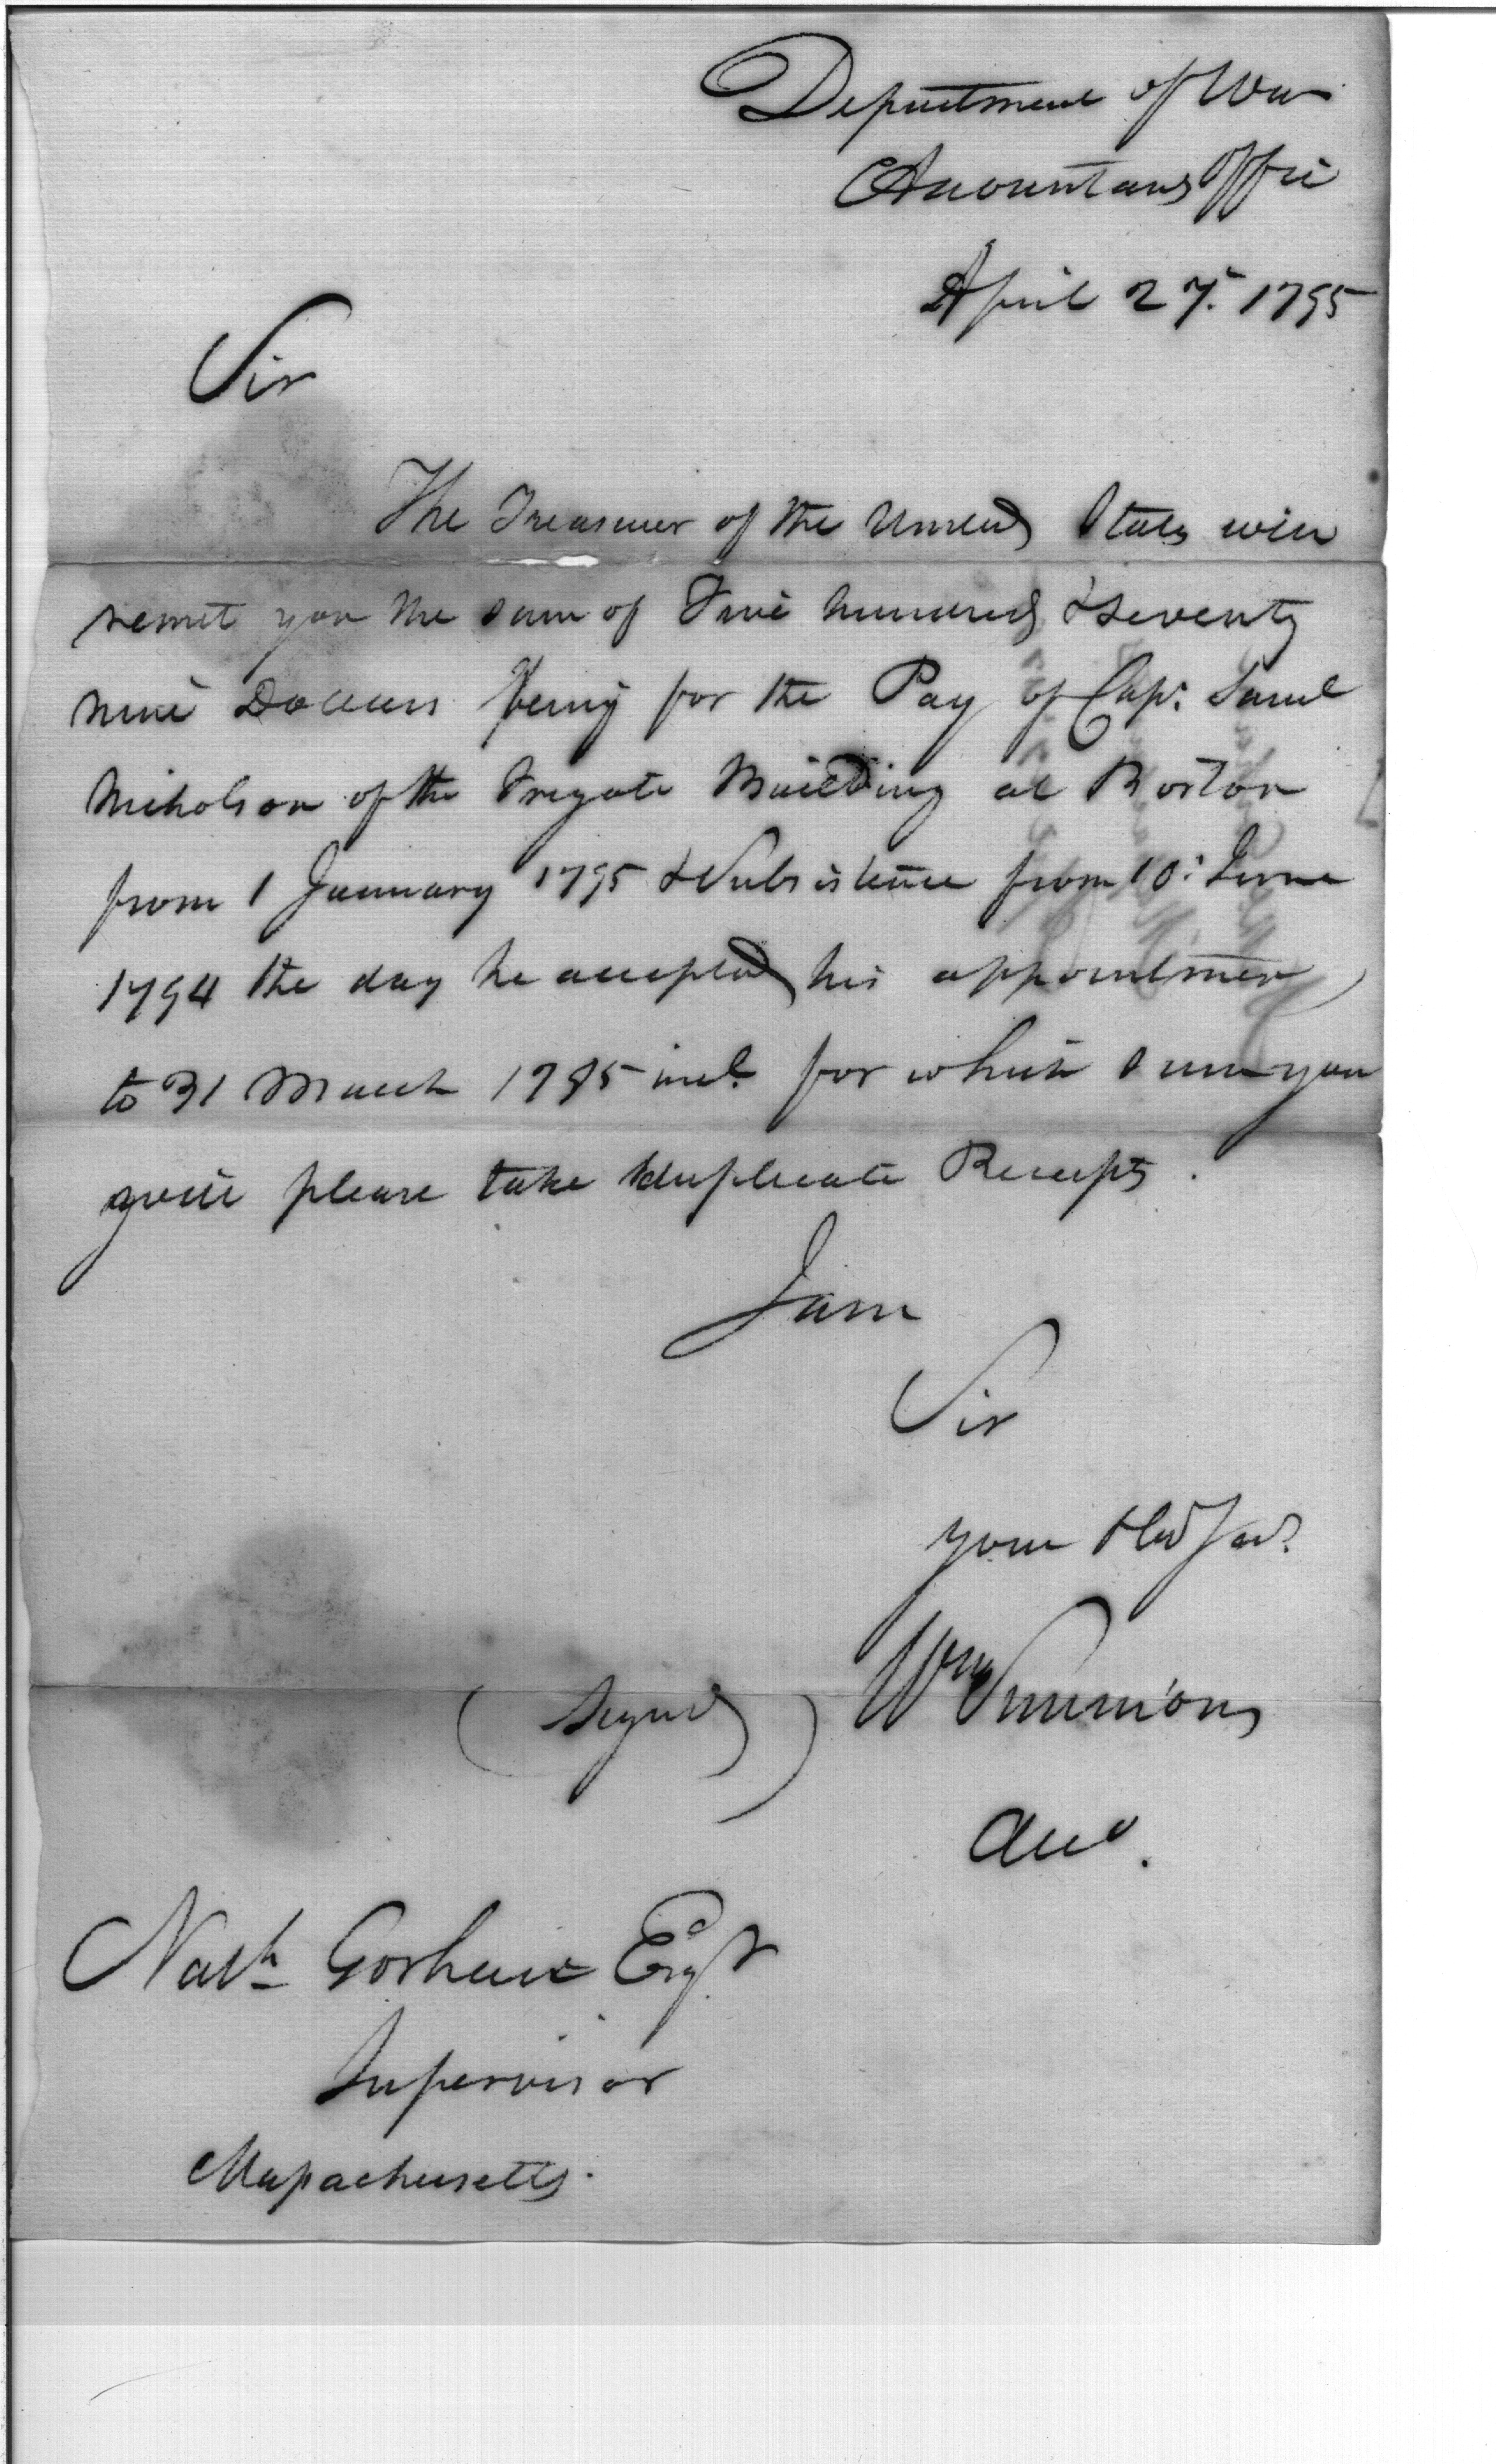 Department of War
Accountants Office
April 27. 1795
Sir
The Treasurer of the United States will
remit you the sum of Five hundred & seventy
nine Dollars being for the Pay of Capt. Saml
Nicholson of the Frigate Building at Boston
from 1 January 1795 & Subsistence from 10: June
1794 the day he accepted his appointment
to 31 March 1795 incl. for which sum you
will please take duplicate Receipts.
I am
Sir
your Obd Servt
(signed) Wm Simmons
Acct.
Nath Gorham Esqr
Supervisor
Massachusetts.